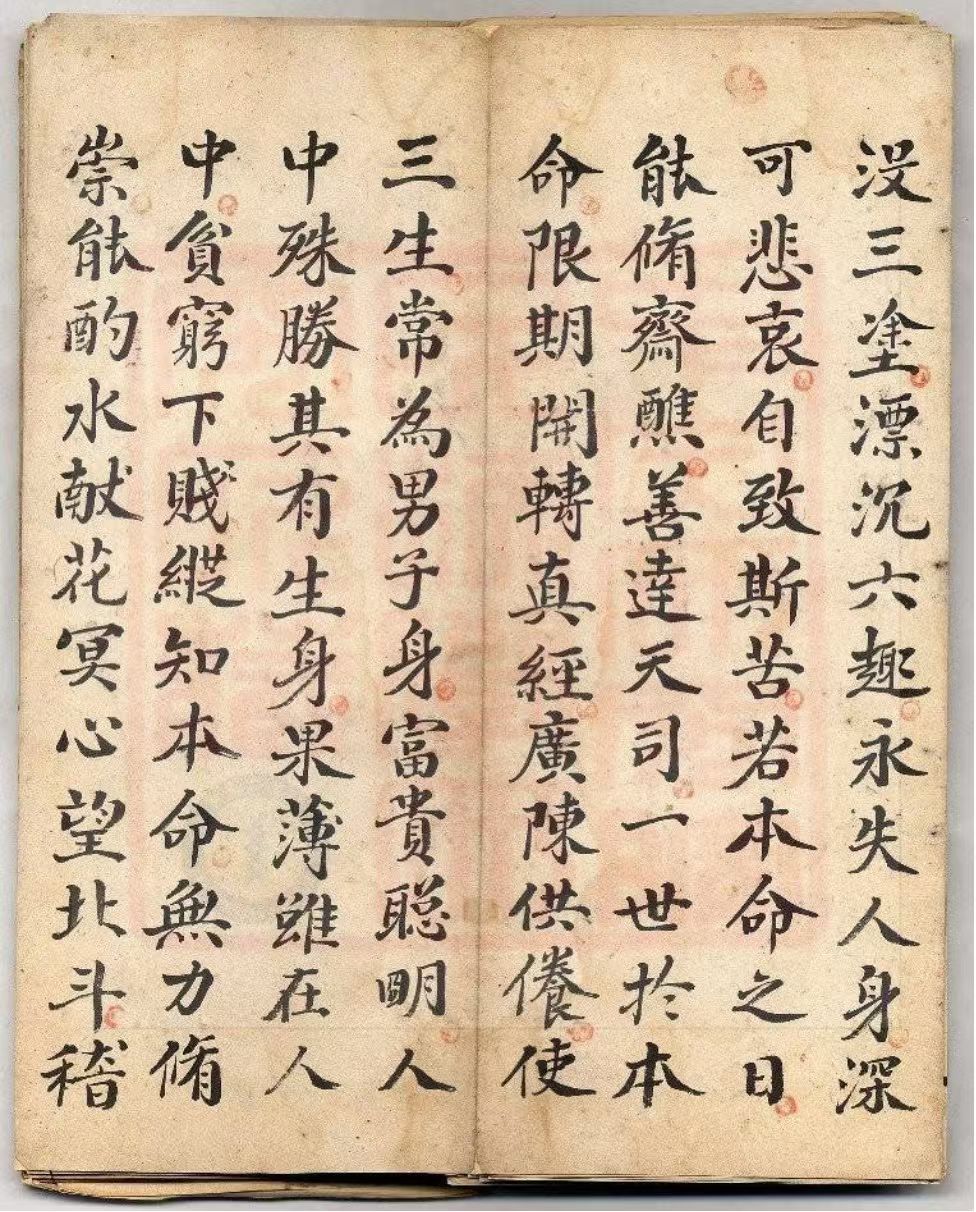 没三塗漂沉六趣永失人身深
可悲哀自致斯苦若本命之日
能脩齋醮善達天司一世於本
命限期開轉真經廣陳供養使
三生常為男子身富貴聡明人
中殊勝其有生身果薄雖在人
中貧窮下賤縱知本命無力脩
崇能酌水献花冥心望北斗稽